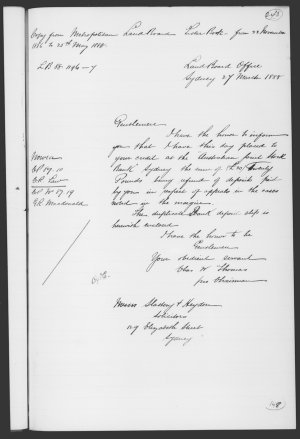 Copy from Metropolitan Land Board Letter Book from 22 November
1886 to 25th May 1888.
L.B. 88. 1196-7
Land Board Office
Sydney 27 March 1888
Gentlemen
I have the honor to inform
you that I have this day placed to
your credit at the Australian Joint Stock
Bank Sydney the sum of Twenty
Pounds being refund of deposits paid
by you in respect of appeals in the cases
noted in the margin.
The duplicate Bank deposit slip is
herewith enclosed
I have the honor to be
Gentlemen
Your obedient servant
Chas W Thomas
pro Chairman
Nowra
19
G.R. Macdonald
Messrs Slattery & Heydon
Solicitors
119 Elizabeth Street
Sydney